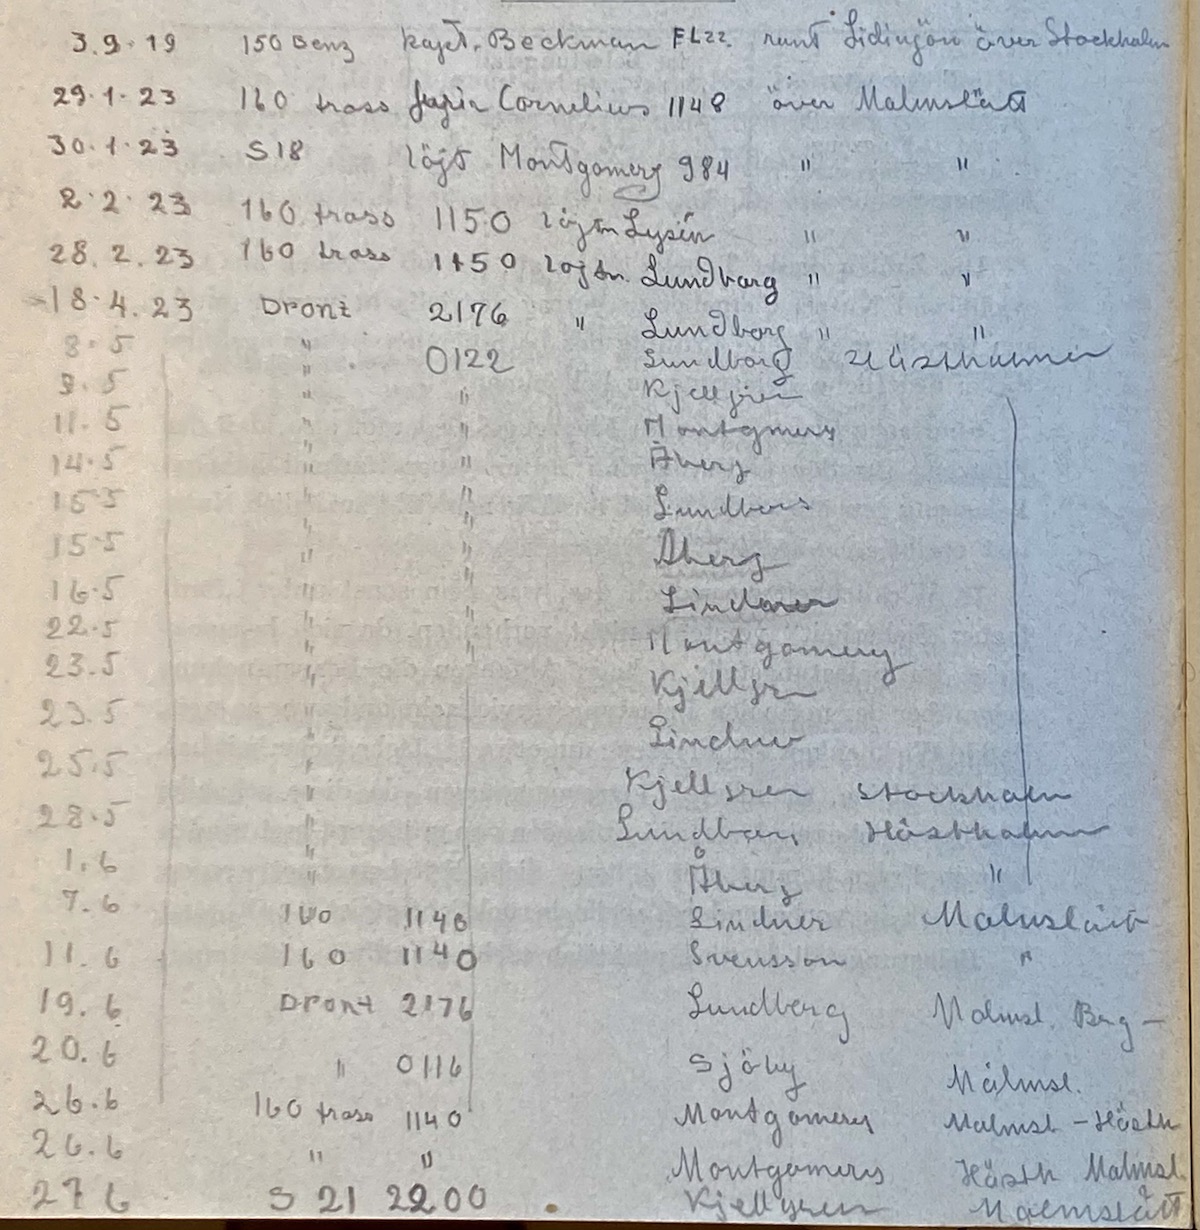 3.9.19 150 Benz kapt. Beckman FL22. runt Lidingön över Stockholm
29.1.23 160 trass Cornelius 1148 över Malmslätt
30.1.23 S18 löjt Montgomery 984 " "
2.2.23 160 trass 1150 löjtn Lysén " "
28.2.23 160 trass 1150 lojtn. Lundbarg " "
18.4.23 Dront 2176 " Lundborg " "
8.5 " 0122 Lundborg Hästholmen
9.5 " " Kjellgren
11.5 " " Montgomery
14.5 " " Åberg
15.5 " " Lundberg
15.5 " " Åberg
16.5 " " Lindner
22.5 " " Montgomery
23.5 " Kjellgren
23.5 " Lindner
25.5 " Kjellgren Stockholm
28.5 " Lundbarg Hästholmen
1.6 " Åberg "
7.6 160 1140 Lindner Malmslätt
11.6 160 1140 Svensson "
19.6 Dront 2176 Lundberg Malmsl. Brg –
20.6 " 0116 Sjöby Malmsl.
26.6 160 trass 1140 Montgomery Malmsl – Hästh
26.6 " " Montgomery Hästh Malmsl.
27 6 S 21 2200 Kjellgren Malmslätt